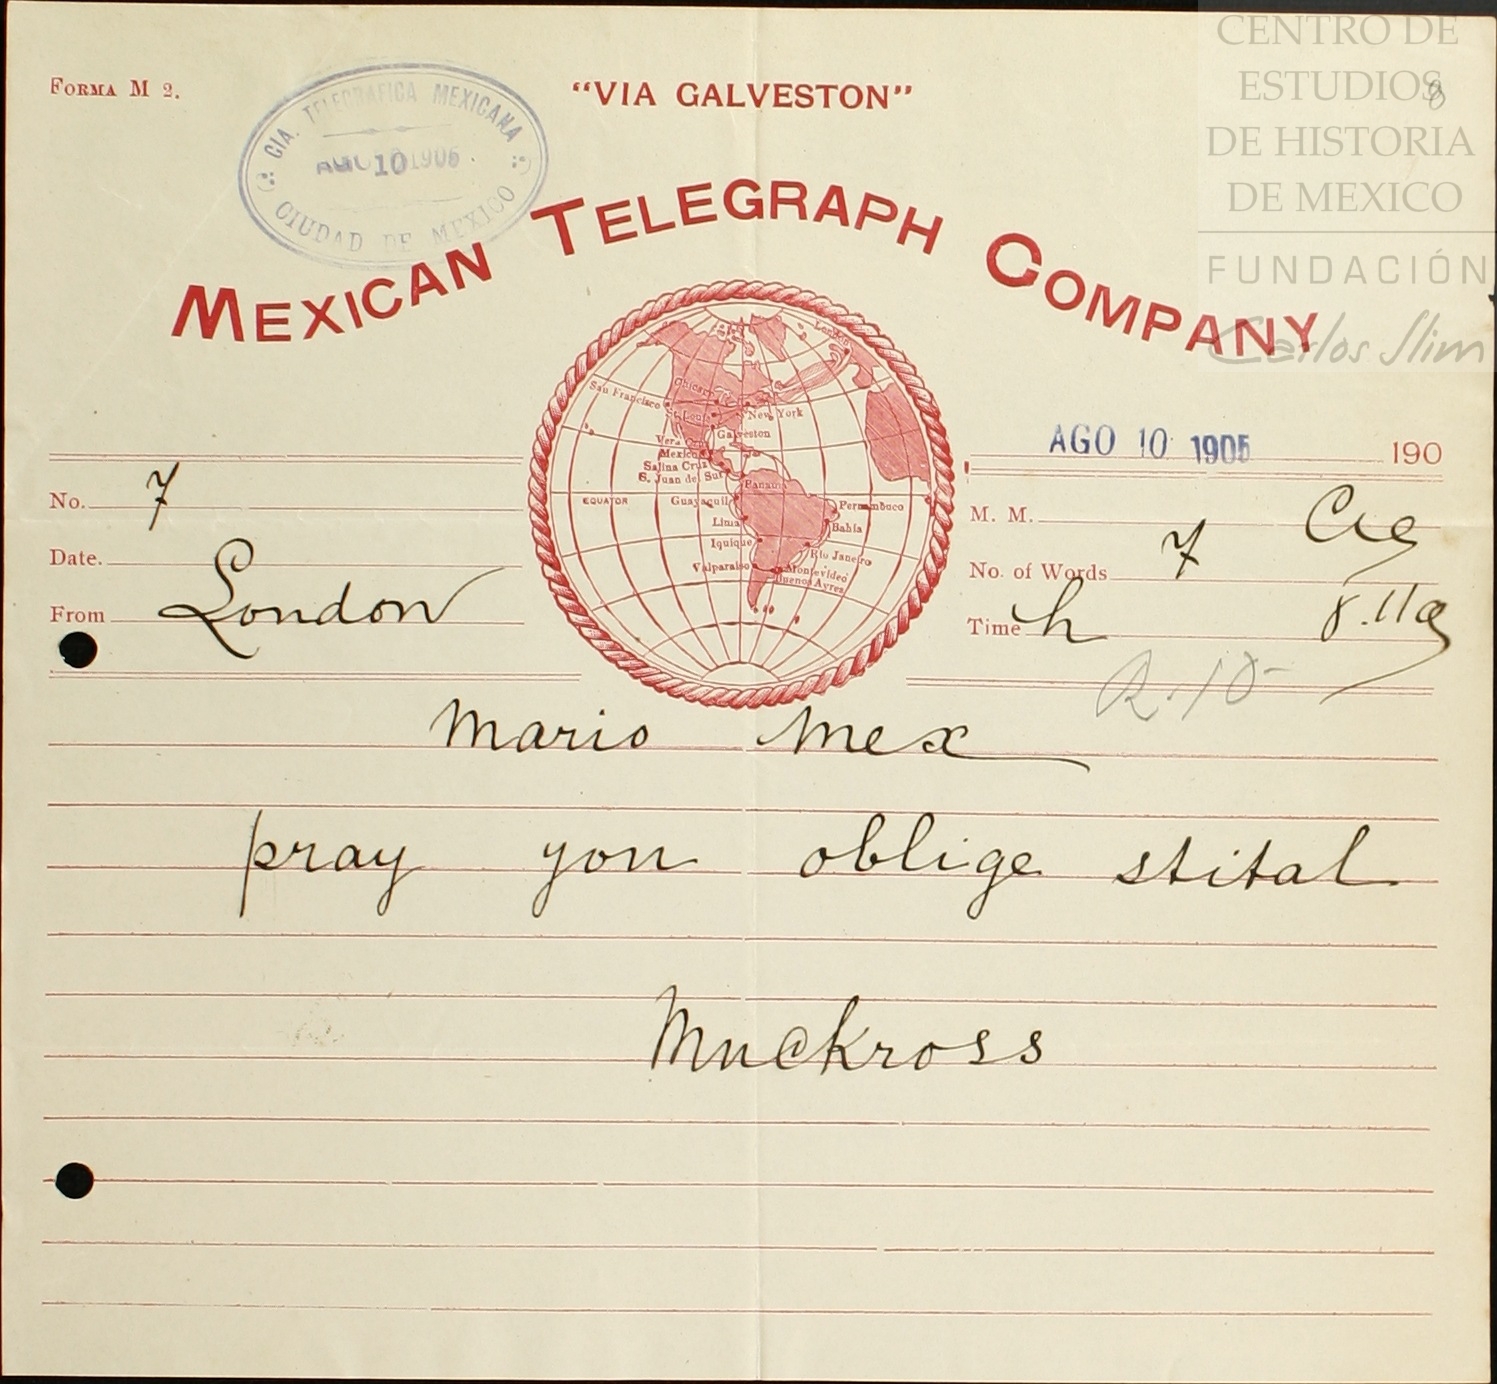 CENTRO DE
ESTUDIOS
DE HISTORIA
DE MEXICO
FUNDACIÓN
Carlos Slim
8
FORMA M 2.
"VIA GALVESTON"
CIA. TELEGRAFICA MEXICANA
AGO 10 1905
CIUDAD DE MEXICO
MEXICAN TELEGRAPH COMPANY
London
San Francisco
Chicago
St Louis
New York
Galveston
Vera Cruz
Mexico
Salina Cruz
S. Juan del Sur
Panama
EQUATOR
Guayaquil
Pernambuco
Lima
Bahia
Iquique
Rio Janeiro
Valparaiso
Montevideo
Buenos Ayres
AGO 10 1905 190
No. 7
M. M.
Date.
No. of Words 7
From London
Time h 8.11a
Mario Mex
pray you oblige stital
Muckross